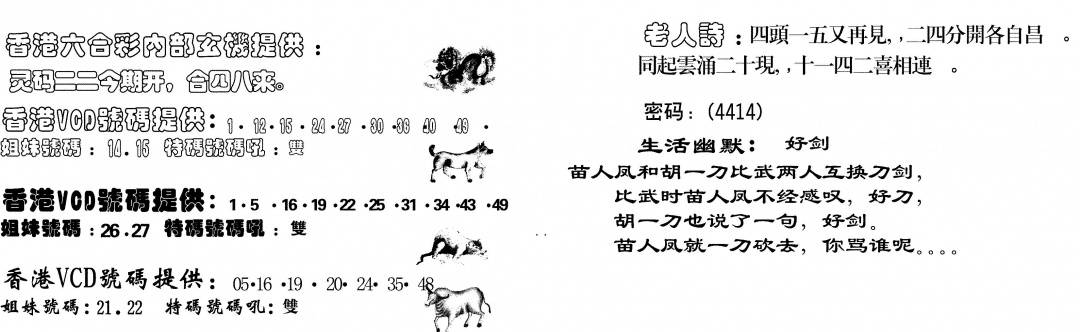 香港六合彩内部玄機提供：
灵码二二今期开，合四八来。
香港VCD號碼提供：1．12．15．24．27．30．38 40 49．
姐妹號碼：14.15 特碼號碼吼：雙
香港VCD號碼提供：1．5．16．19．22．25．31．34．43．49
姐妹號碼：26.27 特碼號碼吼：雙
香港VCD號碼提供：05．16．19．20．24．35．48
姐妹號碼：21.22 特碼號碼吼：雙
老人詩：四頭一五又再見，，二四分開各自昌。
同起雲涌二十現，，十一四二喜相連。
密码：(4414)
生活幽默： 好剑
苗人凤和胡一刀比武两人互换刀剑，
比武时苗人凤不经感叹，好刀，
胡一刀也说了一句，好剑。
苗人凤就一刀砍去，你骂谁呢。。。。